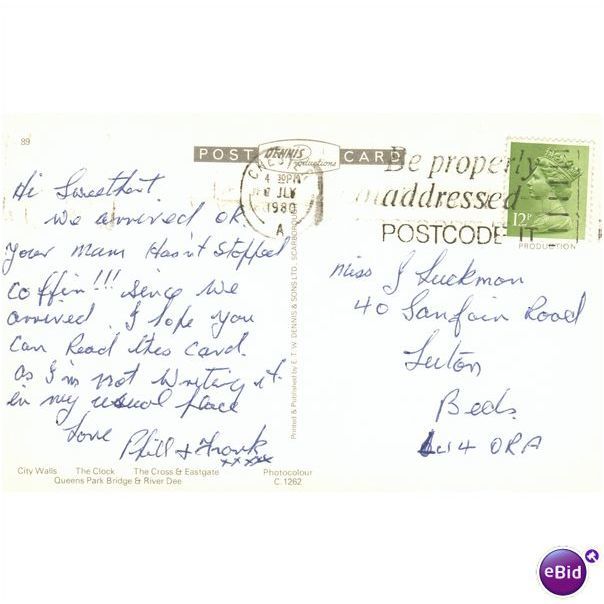 89
POST CARD
DENNIS
Productions
CHEST
4 30PM
JLY
1980
A
Be properly
addressed
POSTCODE IT
12P
PRODUCTION
Hi Sweethart.
we arrived ok
your mam Hasn't Stopped
coffin!!! since we
arrived. I hope you
Can Read this card.
as I'm not writing it
in my usual place
Love Phill & Frank
xx xxx
Printed & Published by E. T. W. DENNIS & SONS LTD. SCARBOROUGH
Miss J Luckmon
40 Road
Luton
Beds.
LU4 0RA
City Walls The Clock The Cross & Eastgate Photocolour
Queens Park Bridge & River Dee C.1262
eBid